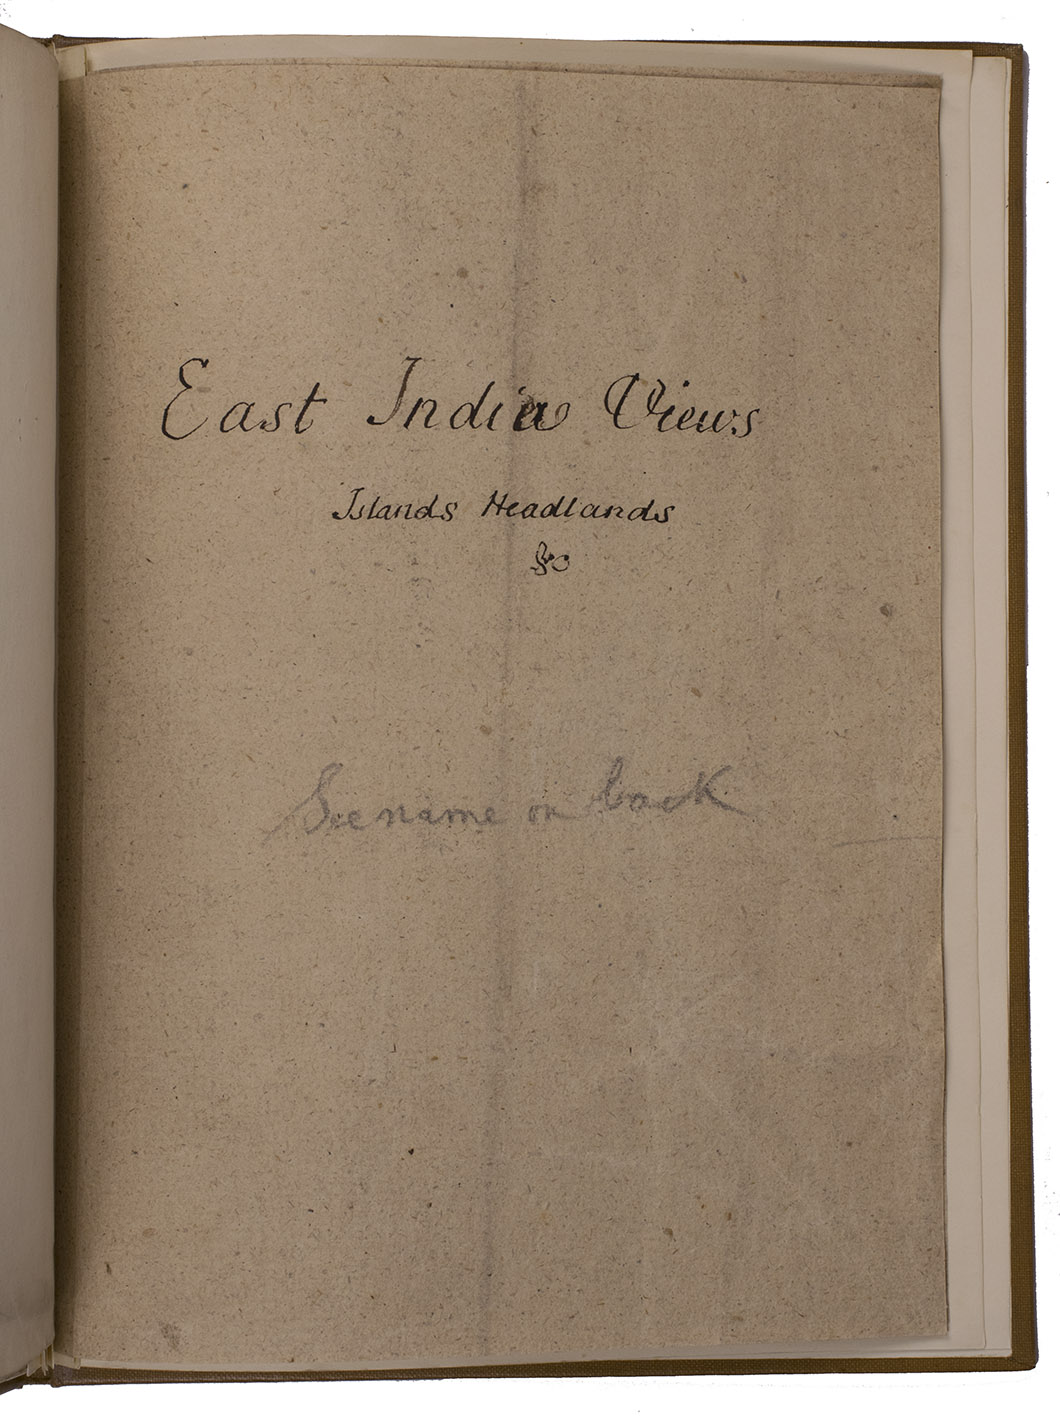 East India Views
Islands Headlands
&c
See name on back